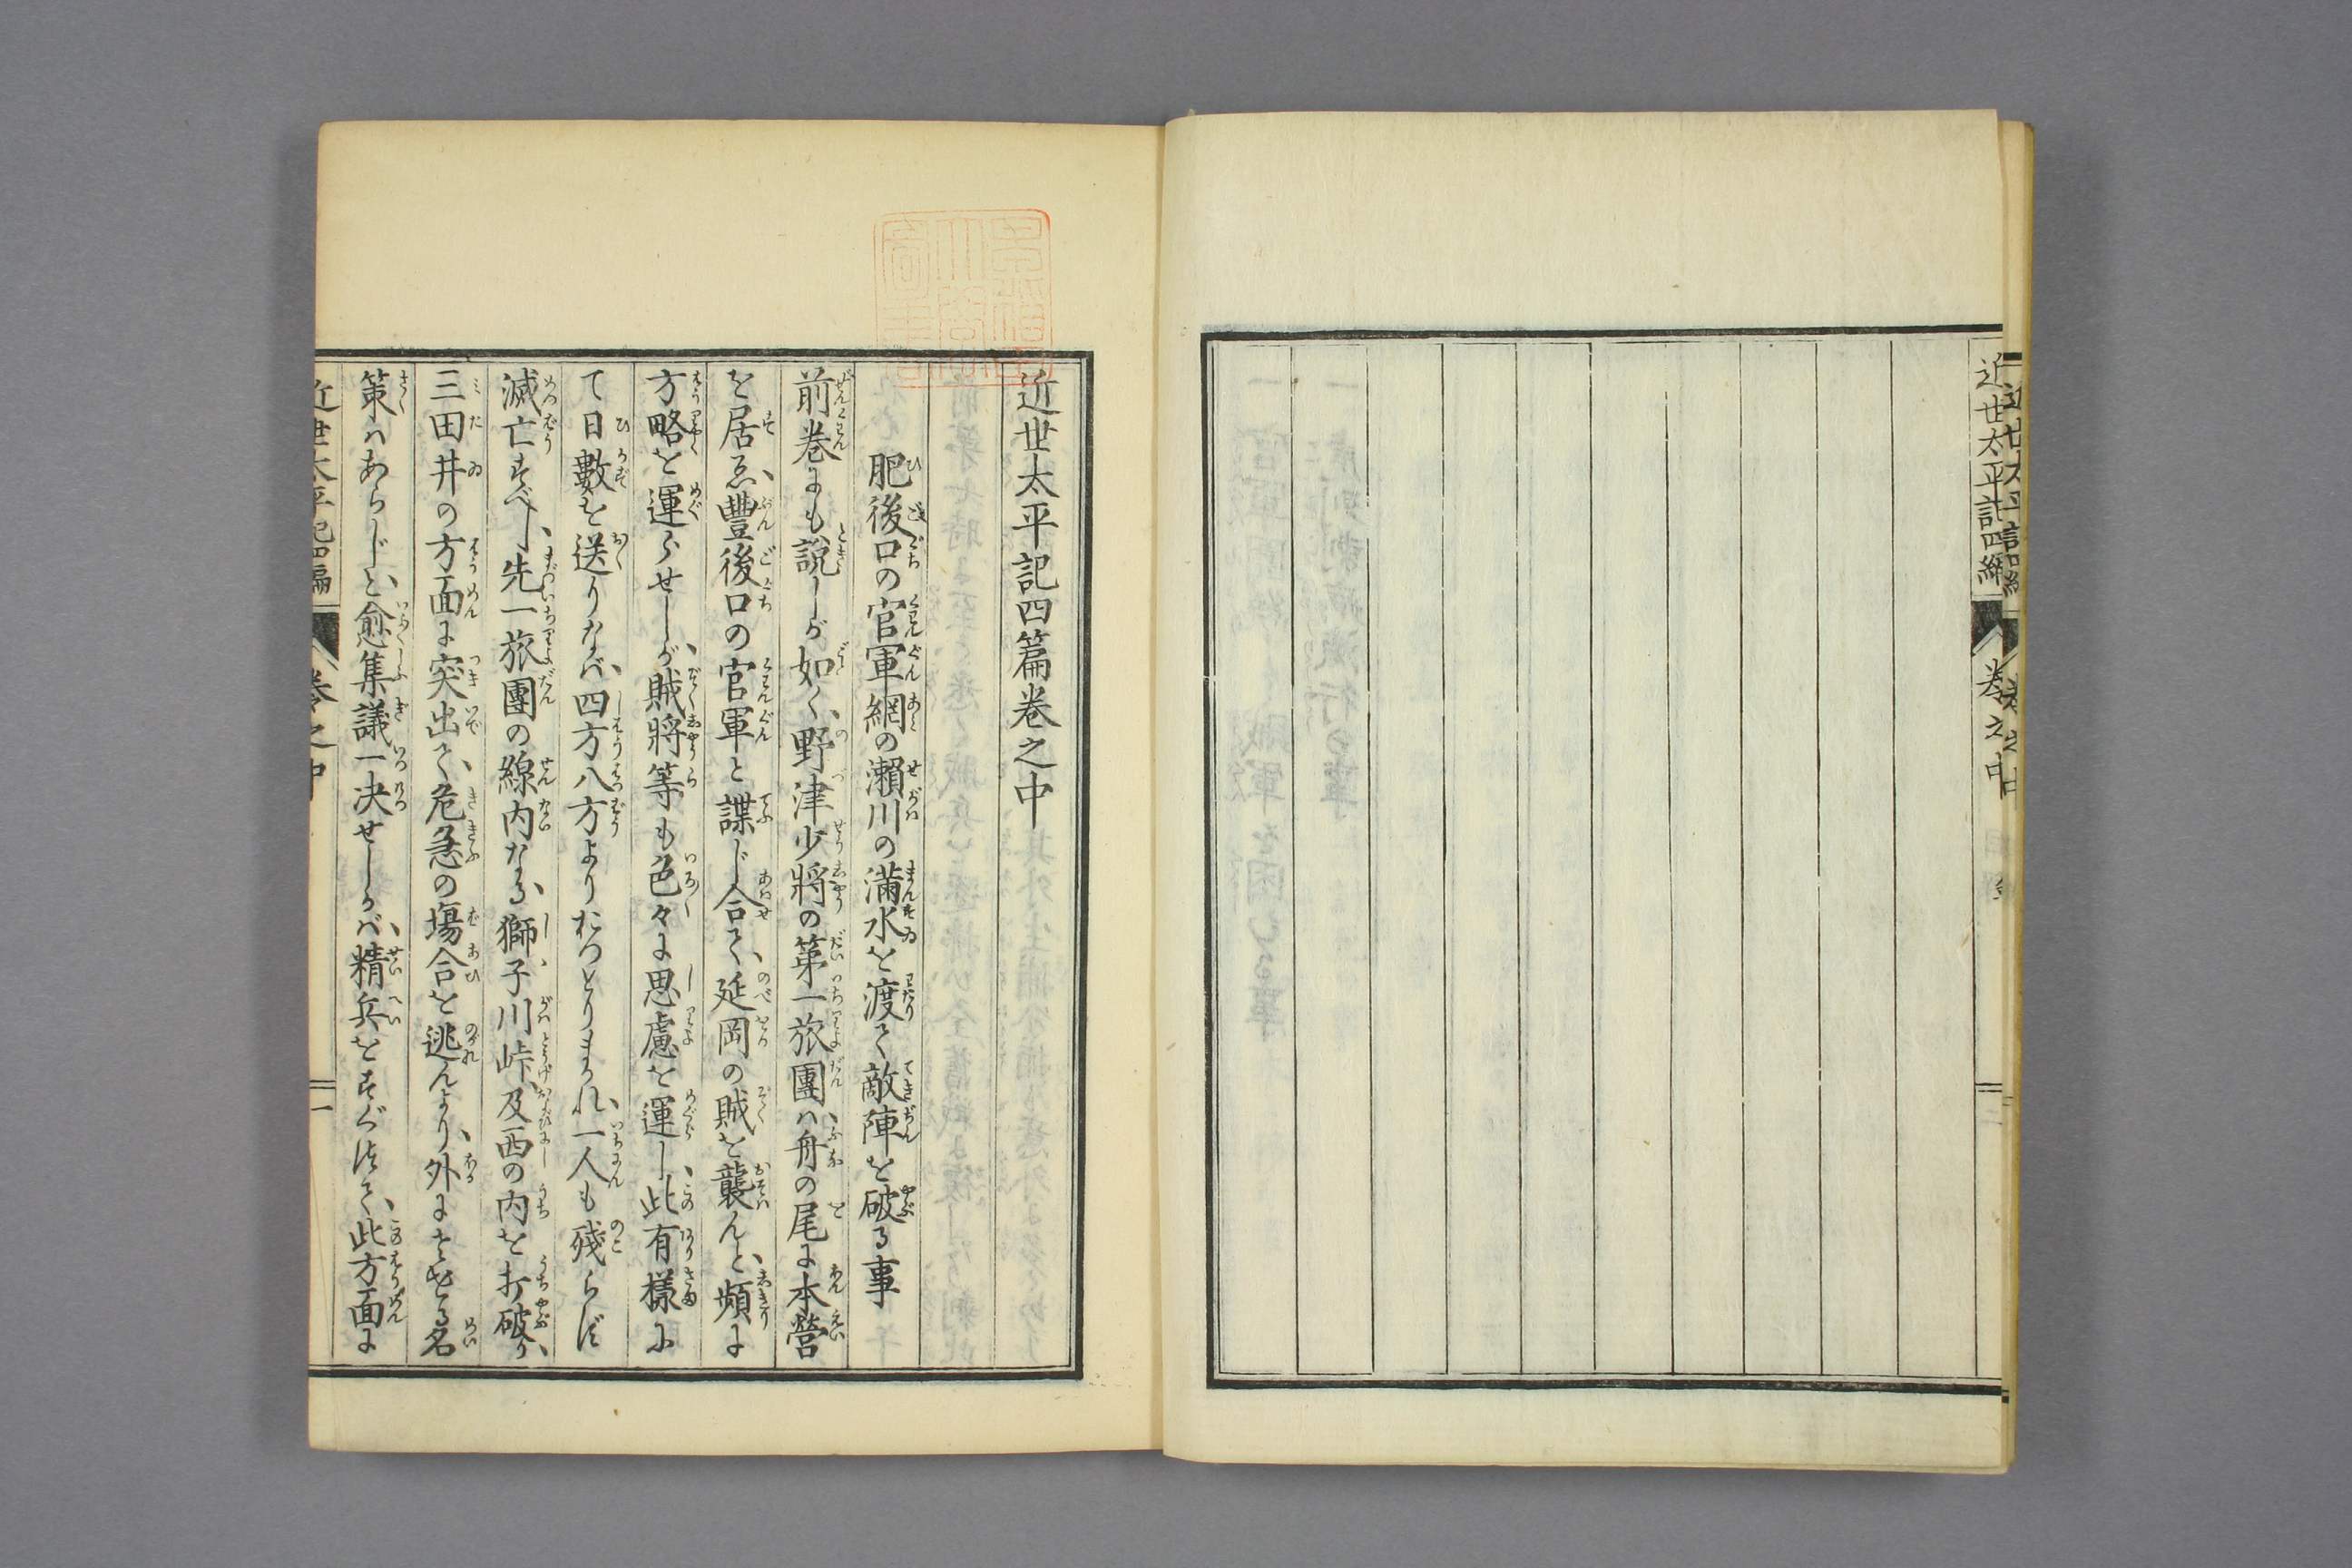 近世太平記四編
卷之中
近世太平記四篇卷之中
肥後口の官軍網の瀬川の滿水を渡て敵陣を破る事
前卷にも説しが如く、野津少將の第一旅團ハ、舟の尾に本營
を居ゑ、豐後口の官軍と諜じ合て、延岡の賊を襲んと、頻に
方略を運らせしが、賊將等も色々に思慮を運し、此有樣に
て日數を送りなバ、四方八方よりおつとりまかれ、一人も殘らず
滅亡すべし、先一旅團の線内なる、獅子川峠、及西の内を打破り、
三田井の方面に突出て、危急の塲合を逃んより、外にさせる名
策ハあらじと、愈集議一决せしかバ、精兵をすぐりて、此方面に
近世太平記四編
卷之中
一